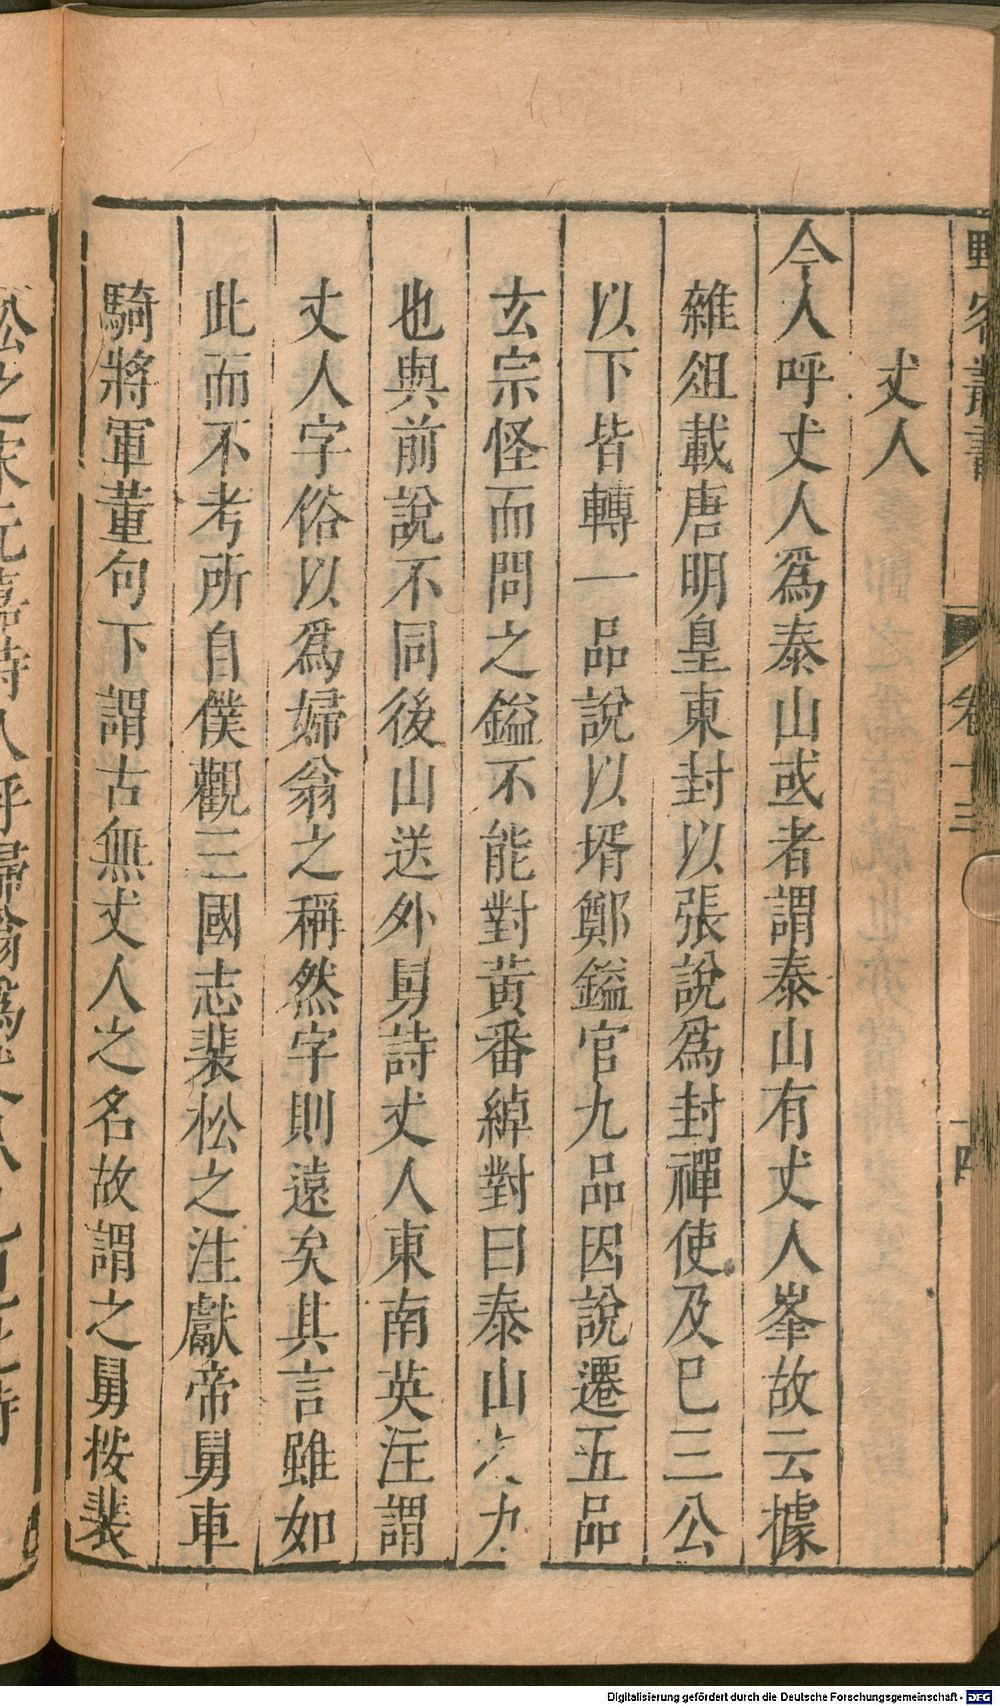 野客叢書 卷十三 十四
丈人
今人呼丈人爲泰山或者謂泰山有丈人峯故云據
雜俎載唐明皇東封以張說爲封禪使及巳三公
以下皆轉一品說以壻鄭鎰官九品因說遷五品
玄宗怪而問之鎰不能對黃番綽對曰泰山之力
也與前說不同後山送外舅詩丈人東南英注謂
丈人字俗以爲婦翁之稱然字則遠矣其言雖如
此而不考所自僕觀三國志裴松之注獻帝舅車
騎將軍董句下謂古無丈人之名故謂之舅按裴
松之宋元嘉時人呼婦翁爲丈人